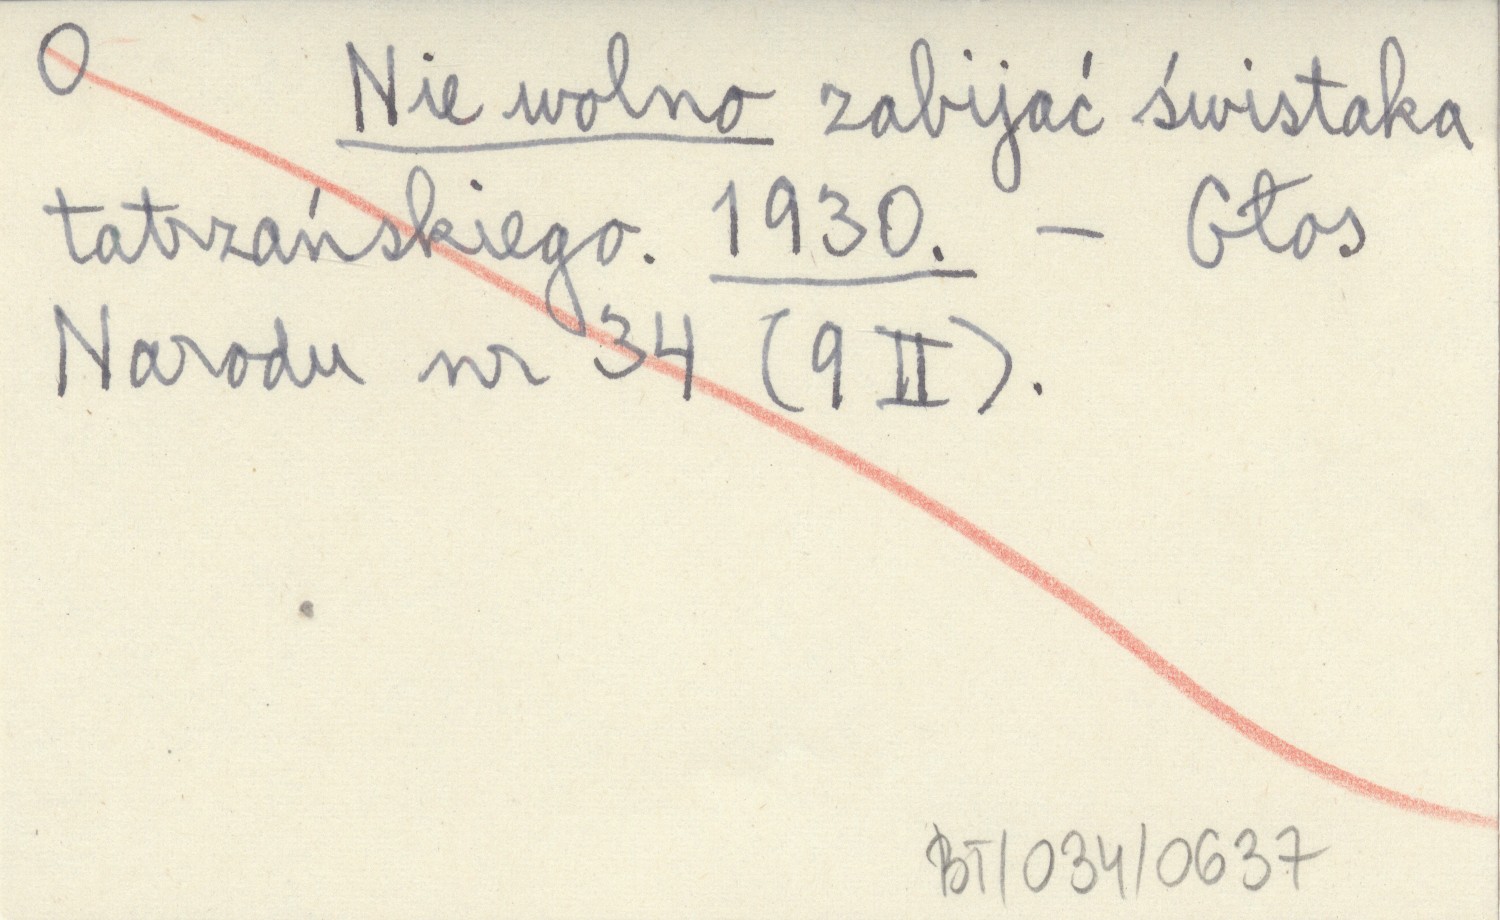 O Nie wolno zabijać świstaka
tatrzańskiego. 1930. — Głos
Narodu nr 34 (9 II).
BT/034/0637